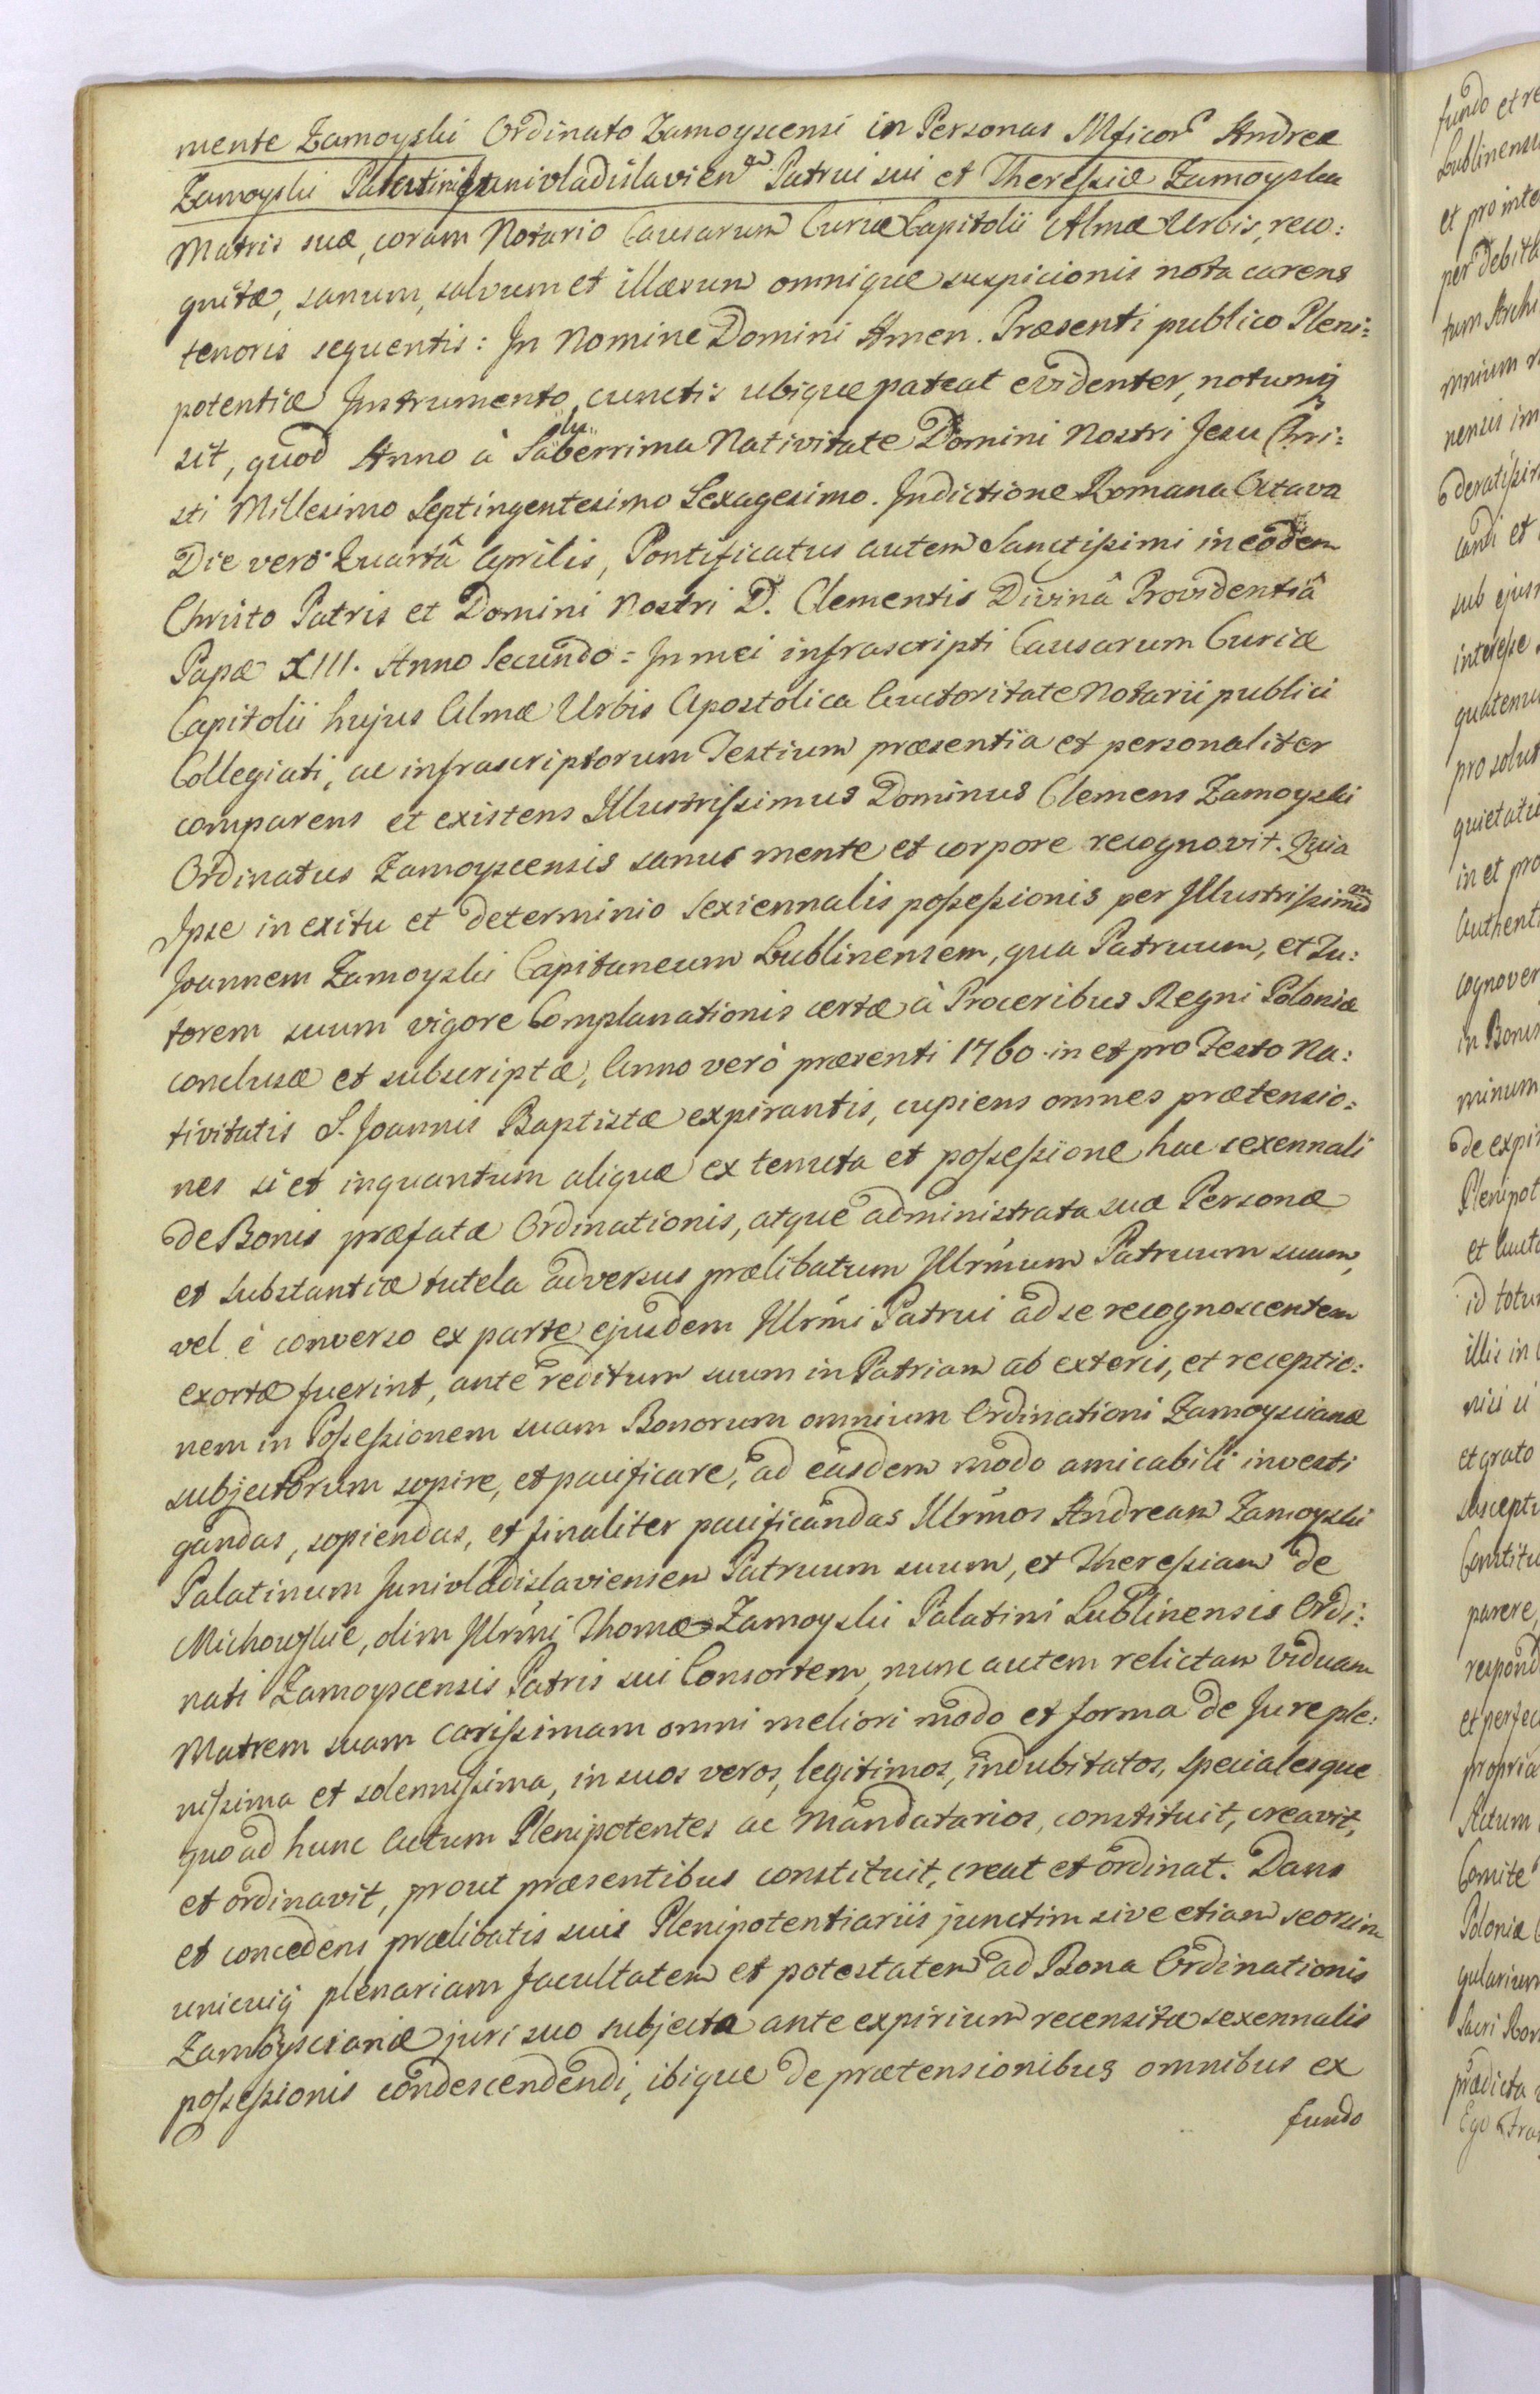 mente Zamoyski Ordinato Zamoyscensi in Personas Mficor Andreæ
Zamoyski Palatini Junivladislavien Patrui sui et Theressiæ Zamoyska
Matris suæ, coram Notario Causarum Curiæ Capitolii Almæ Urbis, reco:
gnitæ, sanum, salvum et illæsum omnique suspicionis nota carens
tenoris sequentis: In Nomine Domini Amen. Præsenti publico Pleni:
potentiæ Instrumento, cunctis ubique pateat evidenter, notumq
sit, quod Anno à Saluberrima Nativitate Domini Nostri Jesu Chri:
sti Millesimo Septingentesimo Sexagesimo. Indictione Romana Octava
Die verò Quartâ Aprilis, Pontificatus autem Sanctissimi in eodem
Christo Patris et Domini Nostri D. Clementis Divinâ Providentiâ
Papæ XIII. Anno Secundo = In mei infrascripti Causarum Curiæ
Capitolii hujus Almæ Urbis Apostolica Auctoritate Notarii publici
Collegiati, ac infrascriptorum Testium præsentia et personaliter
comparens et existens Illustrissimus Dominus Clemens Zamoyski
Ordinatus Zamoyscensis sanus mente et corpore recognovit. Quia
Ipse in exitu et determinio sexiennalis possessionis per Illustrissimum
Joannem Zamoyski Capitaneum Lublinensem, qua Patruum, et Tu:
torem suum vigore Complanationis certæ à Proceribus Regni Poloniæ
conclusæ et subscriptæ, Anno verò præsenti 1760 in et pro Festo Na:
tivitatis S. Joannis Baptistæ expirantis, cupiens omnes prætensio:
nes si et inquantum aliquæ ex tenuta et possessione hac sexennali
de Bonis præfatæ Ordinationis, atque administrata suæ Personæ
et substantiæ tutela adversus prælibatum Illrmum Patruum suum,
vel è converso ex parte ejusdem Illrmi Patrui ad se recognoscentem
exortæ fuerint, ante reditum suum in Patriam ab exteris, et receptio:
nem in Possessionem suam Bonorum omnium Ordinationi Zamoyscianæ
subjectorum sopire, et pacificare, ad easdem modo amicabili investi
gandas, sopiendas, et finaliter pacificandas Illrmos Andream Zamoyski
Palatinum Junivladislaviensem Patruum suum, et Theressiam de
Michowskie, olim Illrmi Thomæ Zamoyski Palatini Lublinensis Ordi:
nati Zamoyscensis Patris sui Consortem, nunc autem relictam Viduam
Matrem suam carissimam omni meliori modo et forma de Jure ple:
nissima et solennissima, in suos veros, legitimos, indubitatos, specialesque
quo ad hunc Actum Plenipotentes ac Mandatarios, constituit, creavit,
et ordinavit, prout præsentibus constituit, creat et ordinat. Dans
et concedens prælibatis suis Plenipotentiariis junctim sive etiam seorsim
unicuiq plenariam facultatem et potestatem ad Bona Ordinationis
Zamoyscianæ juri suo subjecta ante expirium recensitæ sexennalis
possessionis condescendendi, ibique de prætensionibus omnibus ex
fundo
fundo et re
Lublinensi
et pro inte
per debita
mnium
nensis im
candi et
sub ejus
interesse
quatenus
pro solut
quietati
in et pro
Authent
cognover
in Bonis
minum
de expi
Plenipot
id totu
illis in
nisi si
et grato
suscept
Constitu
parere,
respond
et perfec
propria
Actum
Comite
Poloniæ
gularium
Sacri Rom
prædicta
Ego Fran